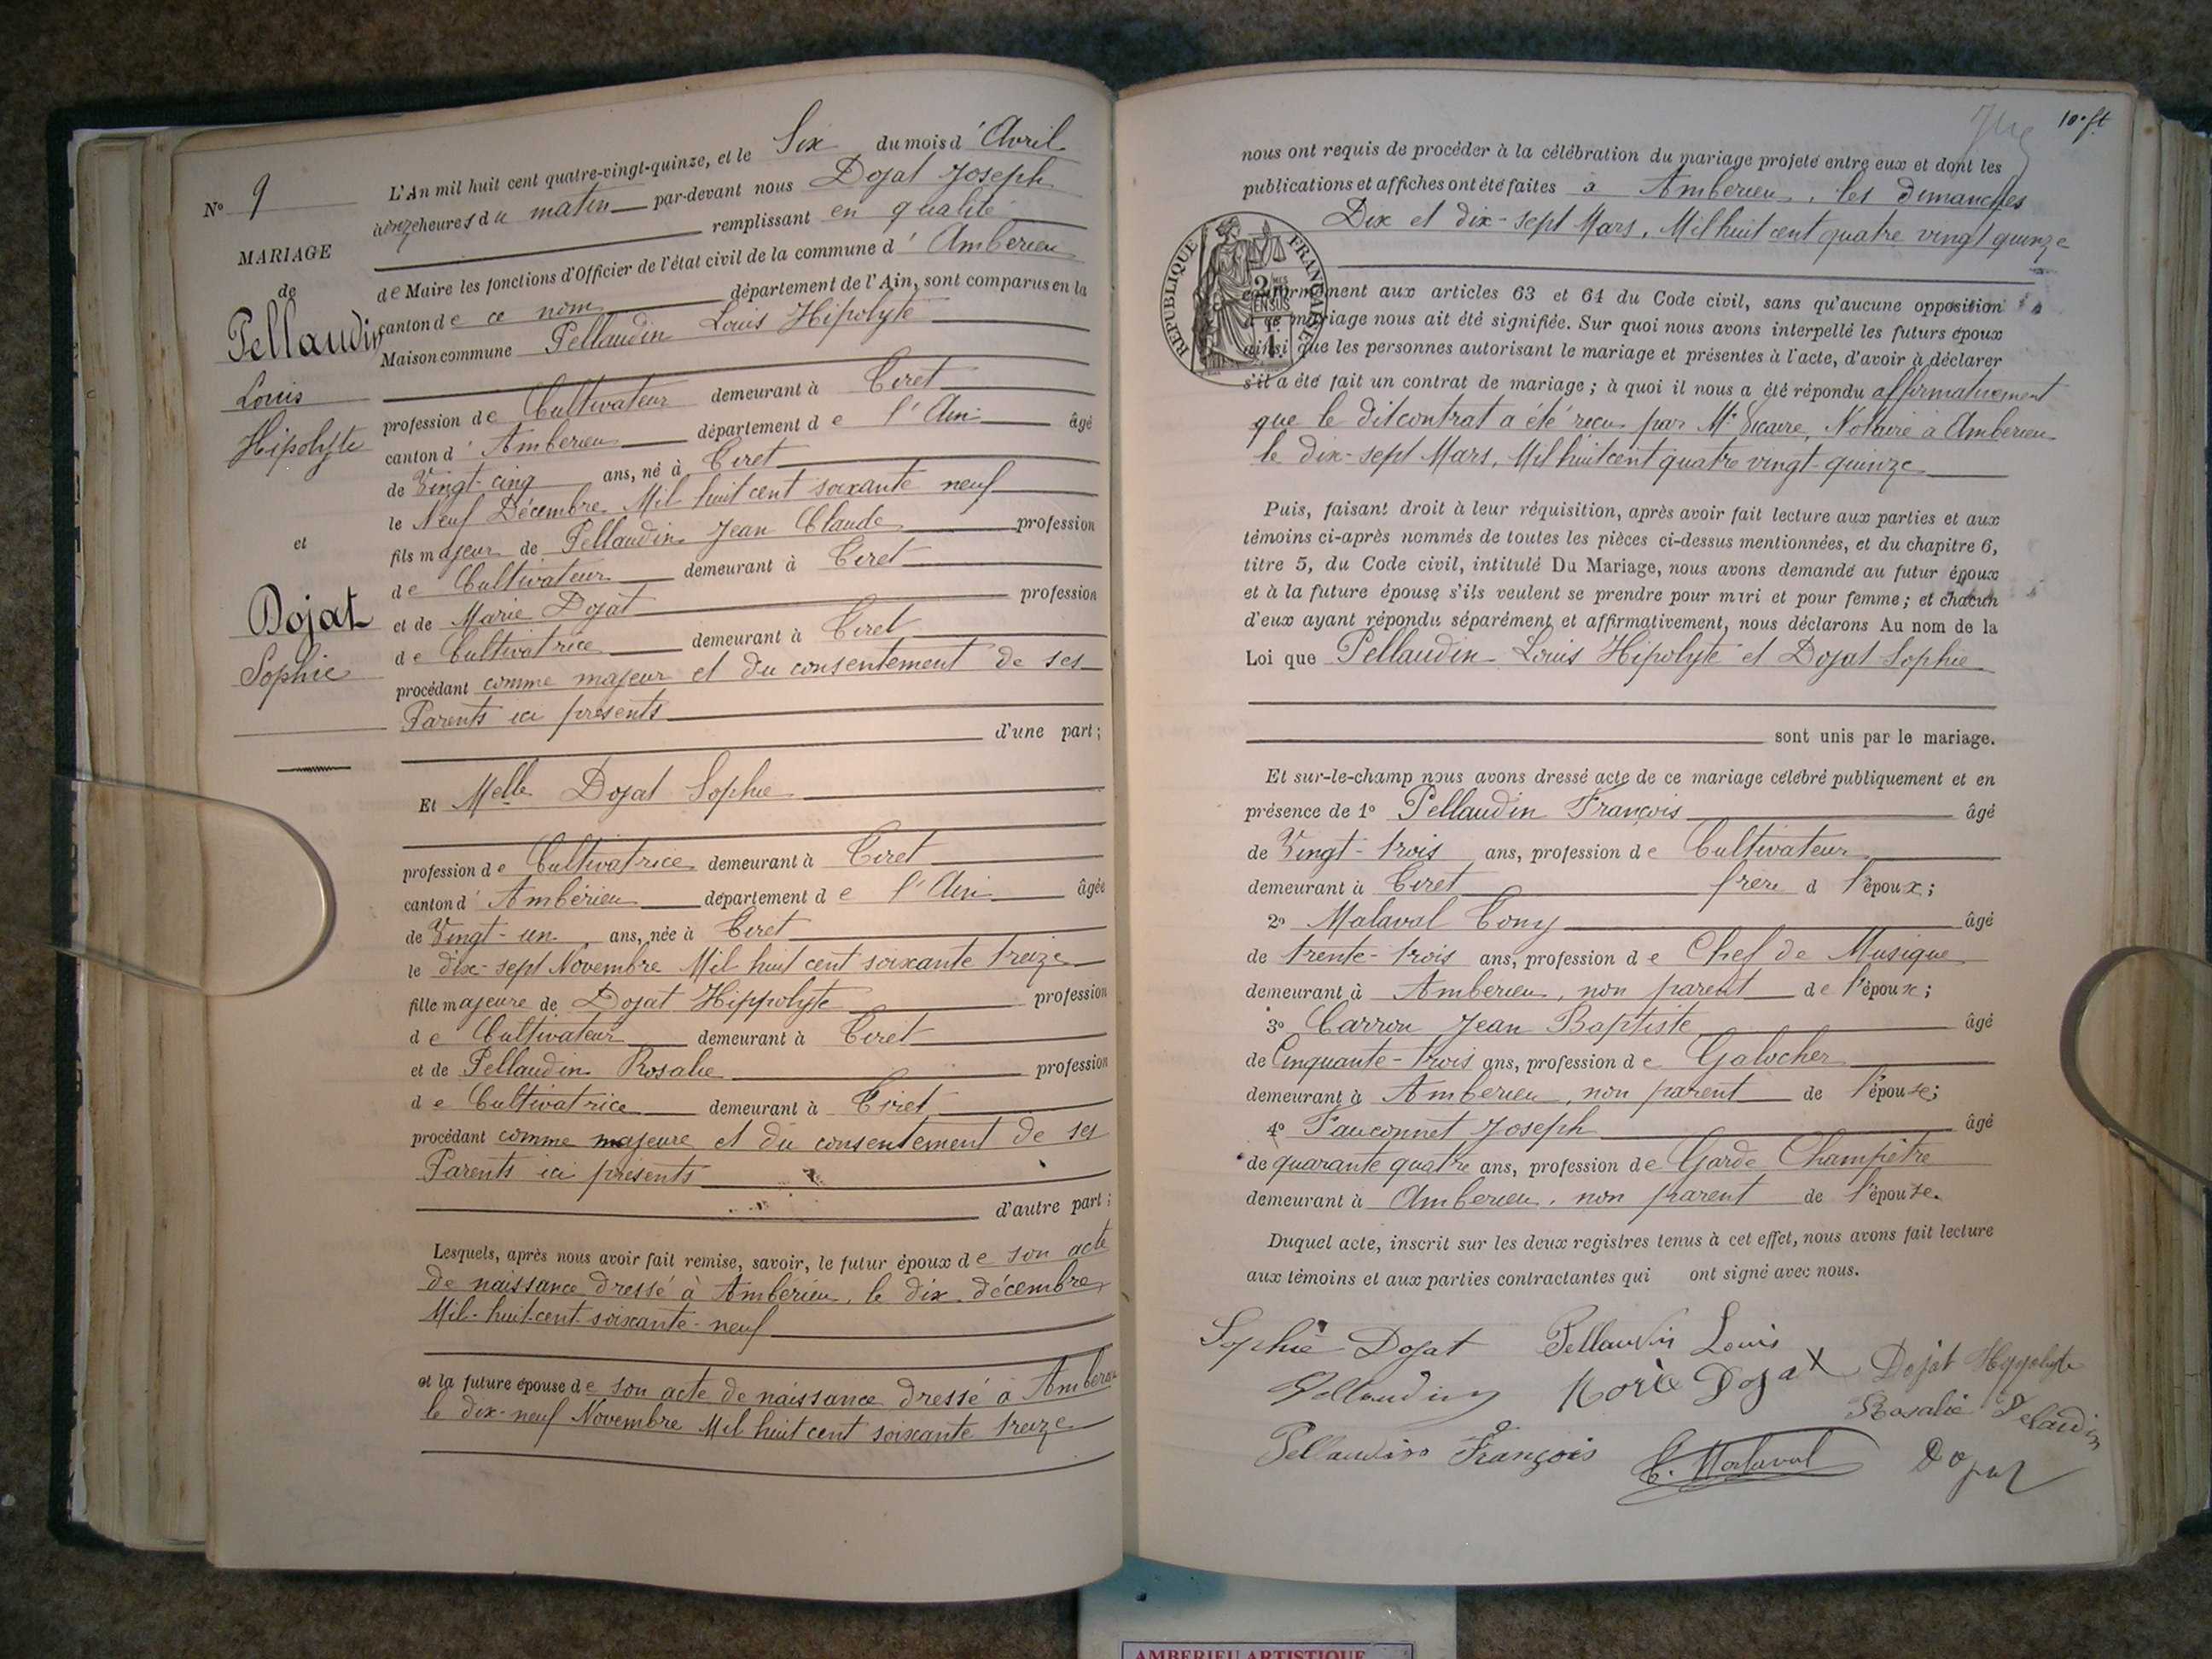 N° 9
MARIAGE
de
Pellaudin
Louis
Hipolyte
et
Dojat
Sophie
L'An mil huit cent quatre-vingt-quinze, et le Six du mois d'Avril
à onze heures du matin par-devant nous Dojat Joseph
remplissant en qualité
de Maire les fonctions d'Officier de l'état civil de la commune d'Amberieu
canton de ce nom département de l'Ain, sont comparus en la
Maison commune Pellaudin Louis Hipolyte
profession de Cultivateur demeurant à Tiret
canton d'Amberieu département de l'Ain âgé
de Vingt-cinq ans, né à Tiret
le Neuf Décembre Mil huit cent soixante neuf
fils majeur de Pellaudin Jean Claude profession
de Cultivateur demeurant à Tiret
et de Marie Dojat profession
de Cultivatrice demeurant à Tiret
procédant comme majeur et du consentement de ses
Parents ici présents
d'une part;
Et Melle Dojat Sophie
profession de Cultivatrice demeurant à Tiret
canton d'Ambérieu département de l'Ain âgée
de Vingt-un ans, née à Tiret
le dix-sept Novembre Mil huit cent soixante treize
fille majeure de Dojat Hippolyte profession
de Cultivateur demeurant à Tiret
et de Pellaudin Rosalie profession
de Cultivatrice demeurant à Tiret
procédant comme majeure et du consentement de ses
Parents ici présents
d'autre part;
Lesquels, après nous avoir fait remise, savoir, le futur époux de son acte
de naissance dressé à Ambérieu, le dix décembre
Mil-huit-cent-soixante-neuf
et la future épouse de son acte de naissance dressé à Amberieu
le dix-neuf Novembre Mil huit cent soixante treize
10e ft
nous ont requis de procéder à la célébration du mariage projeté entre eux et dont les
publications et affiches ont été faites à Amberieu, les dimanches
Dix et dix-sept Mars, Mil huit cent quatre vingt quinze
REPUBLIQUE FRANÇAISE
conformément aux articles 63 et 64 du Code civil, sans qu'aucune opposition
à ce mariage nous ait été signifiée. Sur quoi nous avons interpellé les futurs époux
ainsi que les personnes autorisant le mariage et présentes à l'acte, d'avoir à déclarer
s'il a été fait un contrat de mariage; à quoi il nous a été répondu affirmativement
que le dit contrat a été reçu par Me Vicaire, Notaire à Amberieu
le dix-sept Mars, Mil huit cent quatre vingt-quinze
Puis, faisant droit à leur réquisition, après avoir fait lecture aux parties et aux
témoins ci-après nommés de toutes les pièces ci-dessus mentionnées, et du chapitre 6,
titre 5, du Code civil, intitulé Du Mariage, nous avons demandé au futur époux
et à la future épouse s'ils veulent se prendre pour mari et pour femme; et chacun
d'eux ayant répondu séparément et affirmativement, nous déclarons Au nom de la
Loi que Pellaudin Louis Hipolyte et Dojat Sophie
sont unis par le mariage.
Et sur-le-champ nous avons dressé acte de ce mariage célébré publiquement et en
présence de 1° Pellaudin François âgé
de Vingt-trois ans, profession de Cultivateur
demeurant à Tiret frère d l'époux;
2° Malaval Tony âgé
de trente-trois ans, profession de Chef de Musique
demeurant à Amberieu, non parent de l'époux;
3° Carron Jean Baptiste âgé
de Cinquante-trois ans, profession de Galocher
demeurant à Amberieu, non parent de l'épouse;
4° Fauconnet Joseph âgé
de quarante quatre ans, profession de Garde Champêtre
demeurant à Amberieu, non parent de l'épouse.
Duquel acte, inscrit sur les deux registres tenus à cet effet, nous avons fait lecture
aux témoins et aux parties contractantes qui ont signé avec nous.
Sophie Dojat Pellaudin Louis
Pellaudin Marie Dojat Dojat Hyppolyte
Rosalie Pelaudin
Pellaudin François T. Malaval Dojat
AMBERIEU ARTISTIQUE